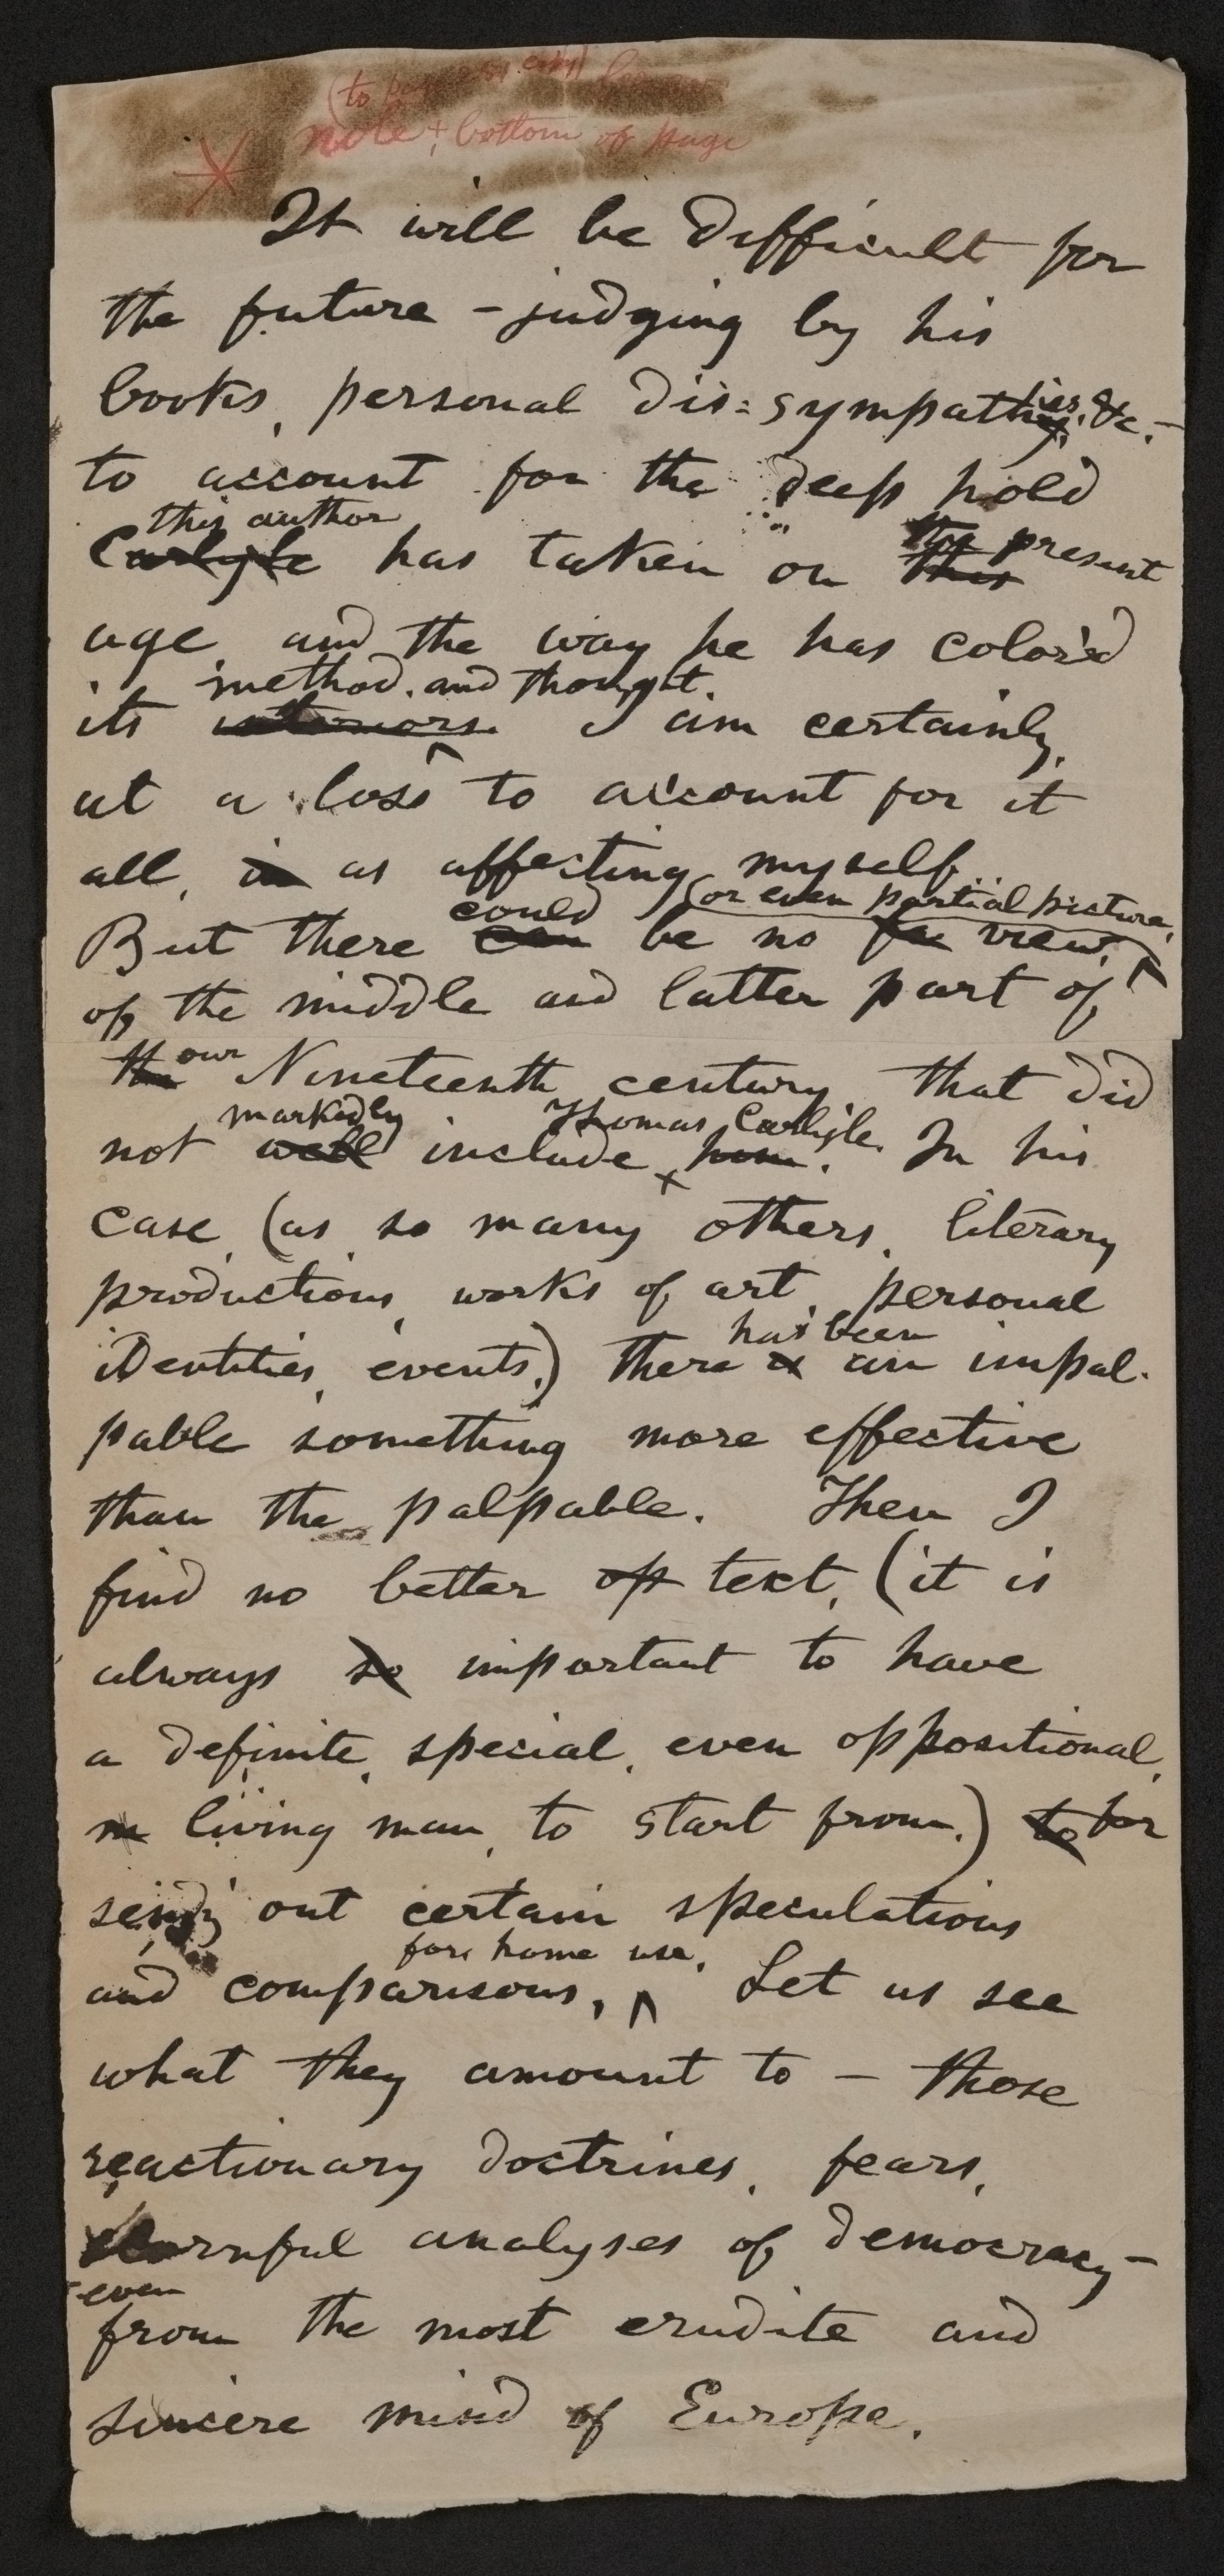 (to page copy)
note + bottom of page
It will be difficult for
the future - judging by his
books, personal dis=sympathies, &c. -
to account for the deep hold
this author
Carlyle has taken on this
the present
age, and the way he has color'd
method, and thought.
its interiors. I am certainly
at a loss to account for it
all, in as affecting myself.
could (or even partial picture,
But there can be no view,
of the middle and latter part of
the our Nineteenth century, that did
markedly Thomas Carlyle.
not well include him. In his
case, (as so many others, literary
productions, works of art, personal
has been
identities, events,) there is an impal-
pable something more effective
than the palpable. Then I
find no better op text, (it is
always so important to have
a definite, special, even oppositional,
m living man, to start from,) to for
send'g out certain speculations
for home use.
and comparisons, ^ Let us see
what they amount to — those
reactionary doctrines, fears,
scornful analyses of democracy —
even
from the most erudite and
sincere mind of Europe.